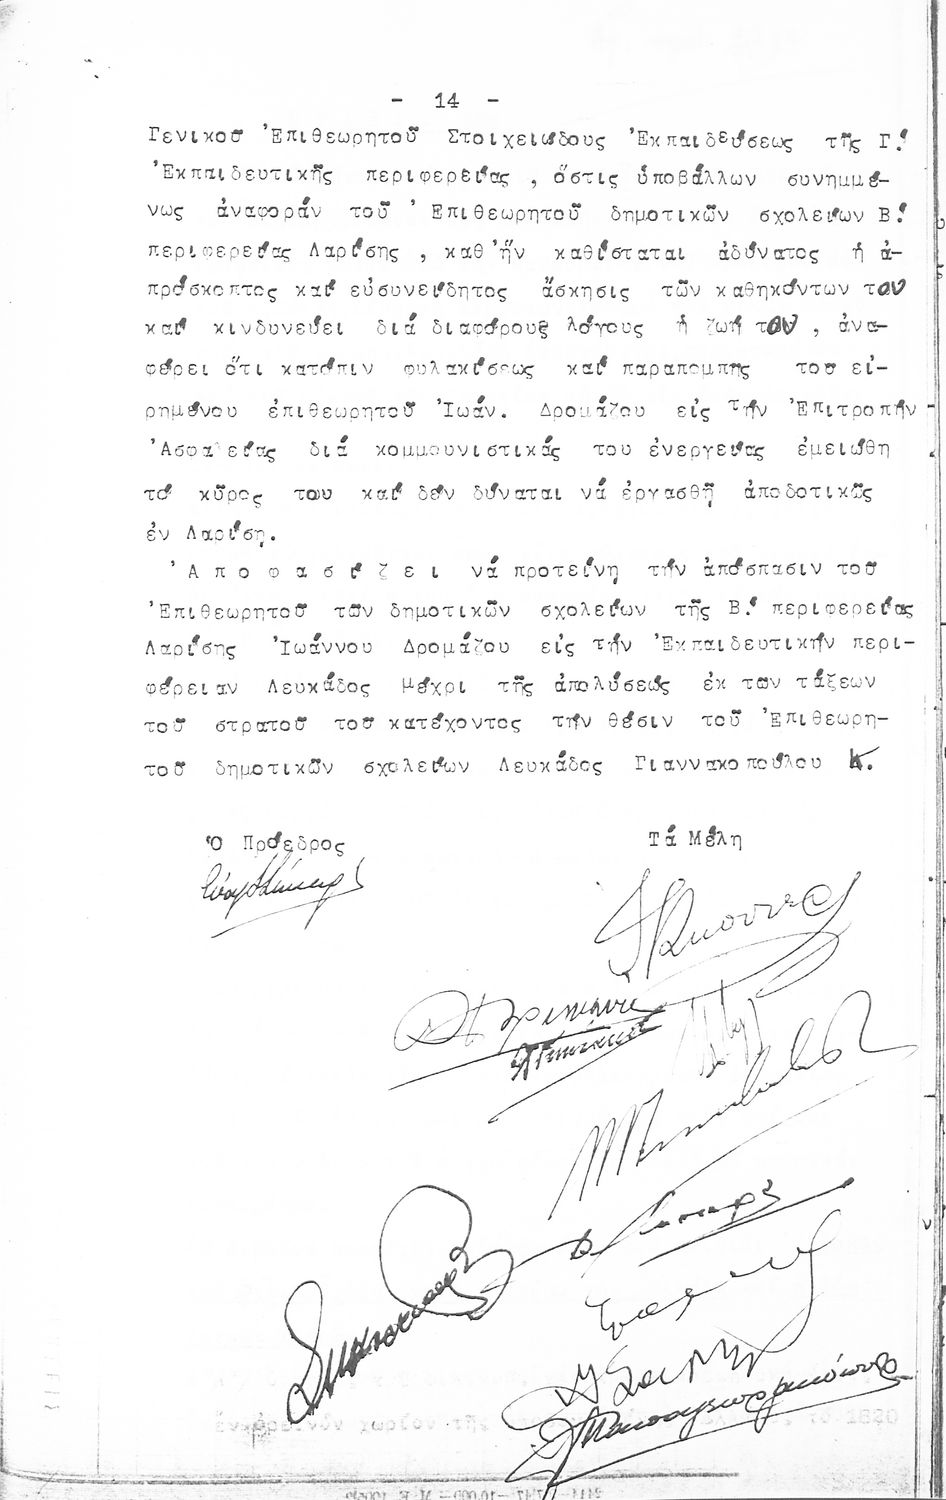 - 14 -
Γενικοῦ Ἐπιθεωρητοῦ Στοιχειώδους Ἐκπαιδεύσεως τῆς Γ.'
Ἐκπαιδευτικῆς περιφερείας , ὅστις ὑποβάλλων συνημμέ-
νως ἀναφοράν τοῦ Ἐπιθεωρητοῦ δημοτικῶν σχολείων Β.'
περιφερείας Λαρίσης , καθ'ἥν καθίσταται ἀδύνατος ἡ ἀ-
πρόσκοπτος καί εὐσυνείδητος ἄσκησις τῶν καθηκόντων του
καί κινδυνεύει διά διαφόρους λόγους ἡ ζωή του , ἀνα-
φέρει ὅτι κατόπιν φυλακίσεως καί παραπομπῆς του εἰ-
ρημένου ἐπιθεωρητοῦ Ἰωάν. Δρομάζου εἰς τήν Ἐπιτροπήν
Ἀσφαλείας διά κομμουνιστικάς του ἐνεργείας ἐμειώθη
τό κῦρος του καί δέν δύναται νά ἐργασθῇ ἀποδοτικῶς
ἐν Λαρίσῃ.
Ἀ π ο φ α σ ί ζ ε ι νά προτείνη τήν ἀπόσπασιν τοῦ
Ἐπιθεωρητοῦ τῶν δημοτικῶν σχολείων τῆς Β.' περιφερείας
Λαρίσης Ἰωάννου Δρομάζου εἰς τήν Ἐκπαιδευτικήν περι-
φέρειαν Λευκάδος μέχρι τῆς ἀπολύσεώς ἐκ τῶν τάξεων
τοῦ στρατοῦ τοῦ κατέχοντος τήν θέσιν τοῦ Ἐπιθεωρη-
τοῦ δημοτικῶν σχολείων Λευκάδος Γιαννακοπούλου Κ.
Ὁ Πρόεδρος
Τά Μέλη